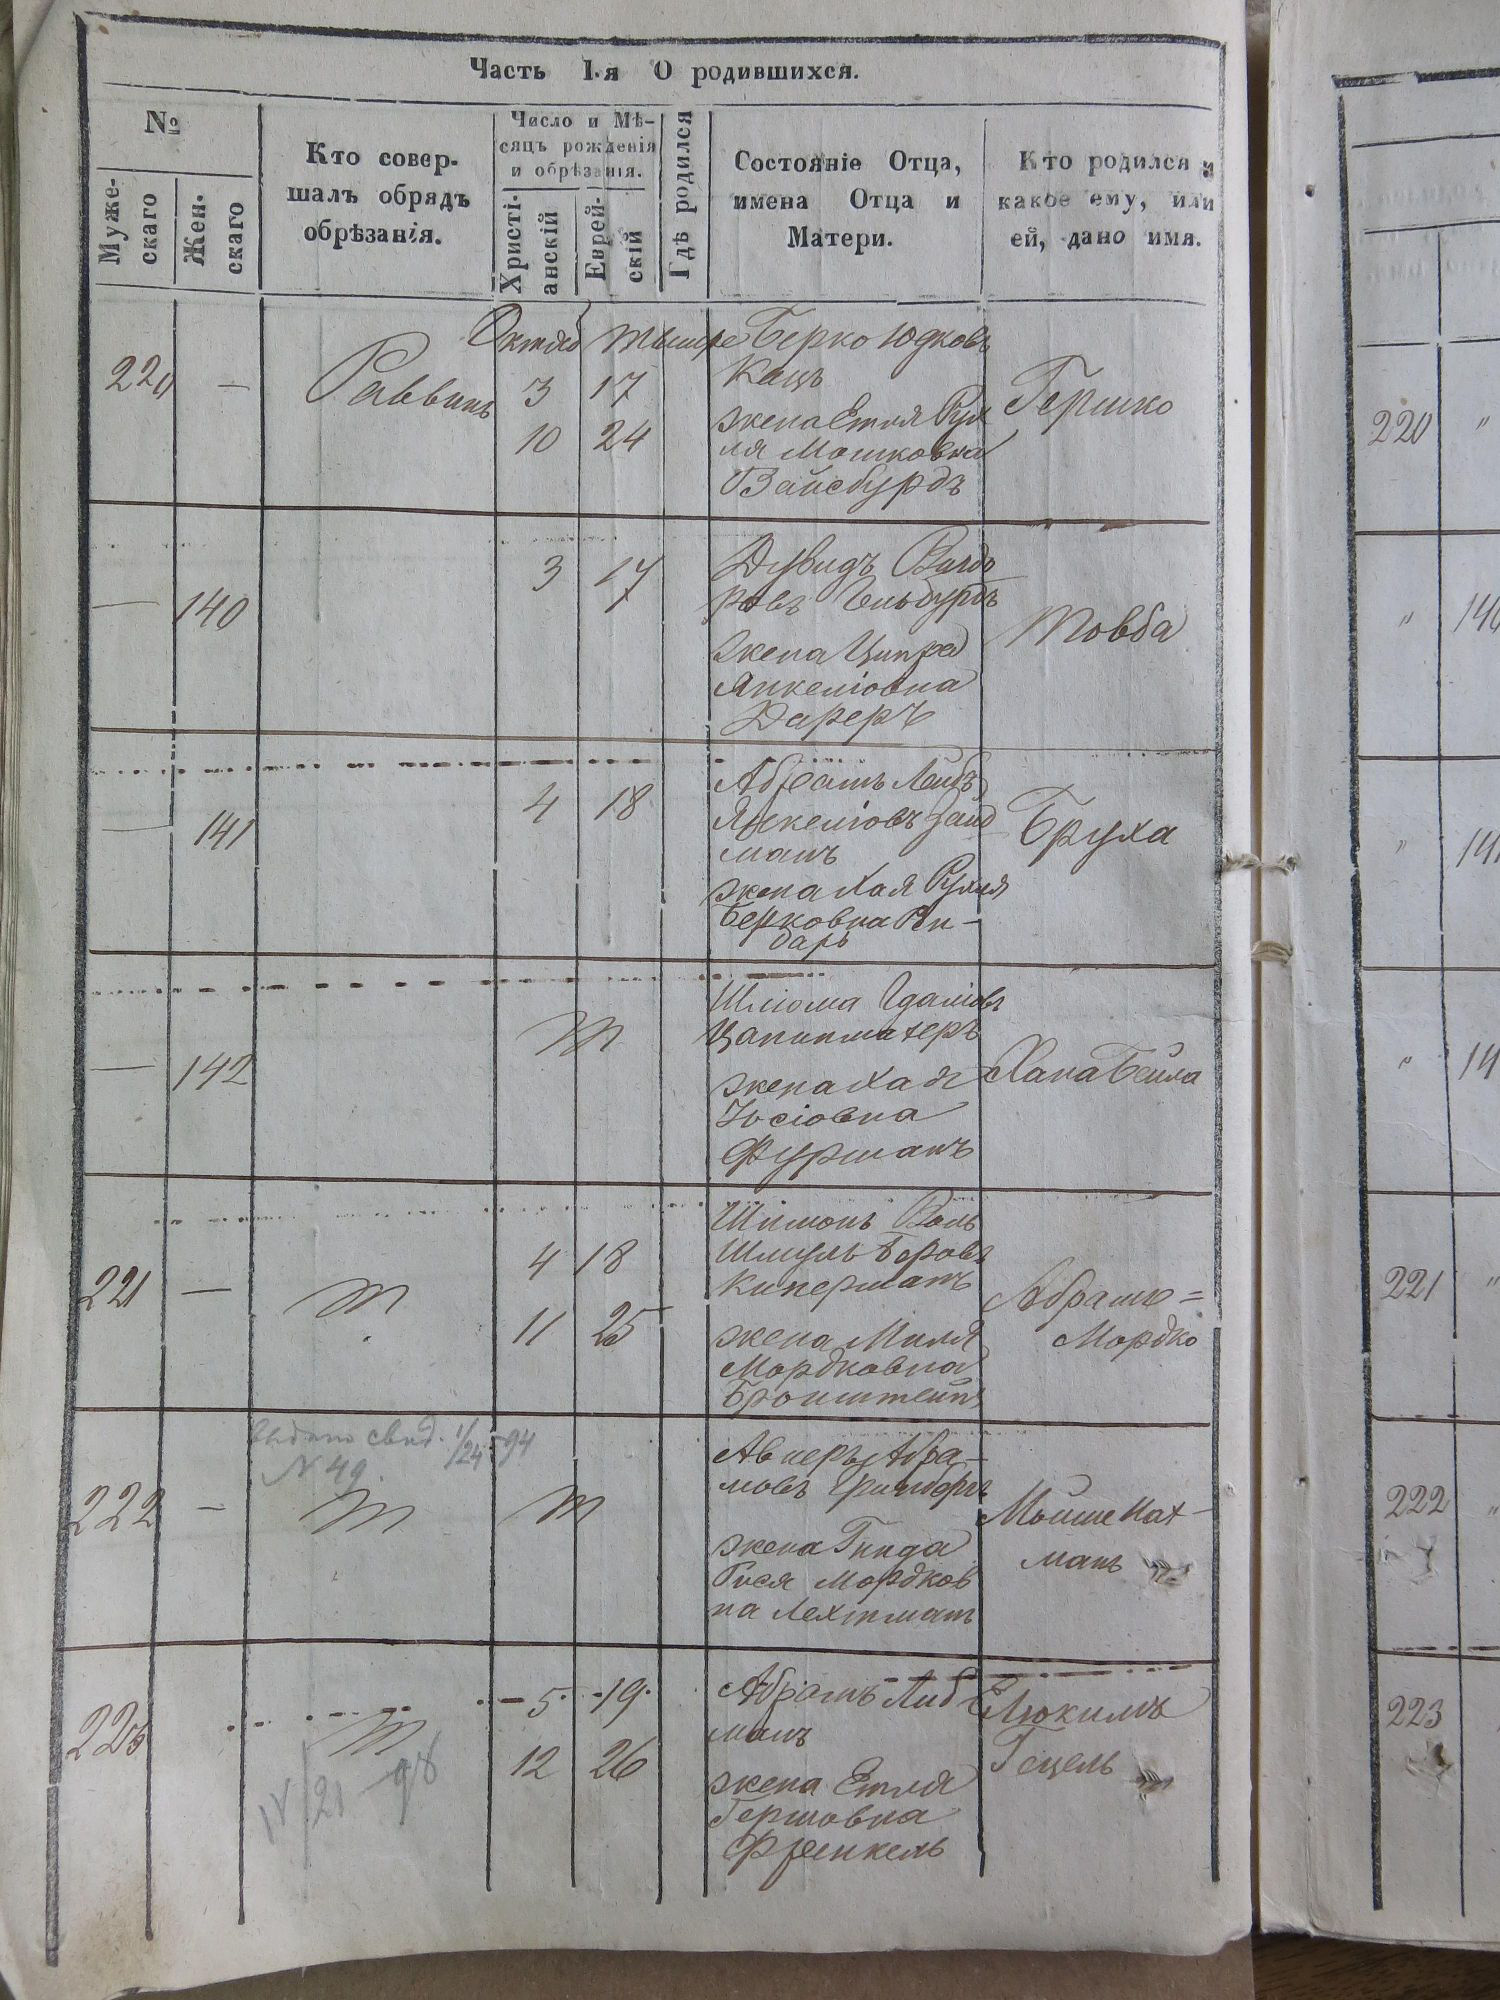 Часть I.я О родившихся.
№
Муже-
скаго
Жен.
скаго
Кто совер-
шалъ обрядъ
обрѣзанія.
Число и Мѣ-
сяцъ рожденія
и обрѣзанія.
Христі-
анскій
Еврей-
скій
Гдѣ родился
Состояніе Отца,
имена Отца и
Матери.
Кто родился и
какое ему, или
ей, дано имя.
220 — Раввинъ
Октяб
3 17
10 24
Берко Юдковъ
Кацъ
жена Етля Рух
ля Мошковна
Вайсбурдъ
Гершко
— 140
3 17
Дувидъ
жена Ципра
Янкеліовна
Дареръ
Товба
— 141
4 18
Абрамъ Лейбъ
Янкеліовъ Зайд
манъ
жена Хая Рухля
Берковна Ри-
барь
Бруха
— 142
Шліома
жена Хая
Іосіовна
Фурманъ
Хана Бейла
221 —
4 18
11 25
Шимонъ Воль
Шмуль Беровъ
Киперманъ
жена Маля
Мордковна
Бронштейнъ
Абрамъ =
Мордко
выдано свид. 1/24 -94
N 49.
222 —
Авнеръ Абра-
мовъ Гринберъ
жена Гинда
Гися Мордков
на Лехтманъ
Мойше Нах-
манъ
223
IV/21 -98
5 19
12 26
Абрамъ Либ
манъ
жена Етля
Гершовна
Френкель
Елюкимъ
Гецель
220 "
" 140
" 141
" 14
221 "
222 "
223